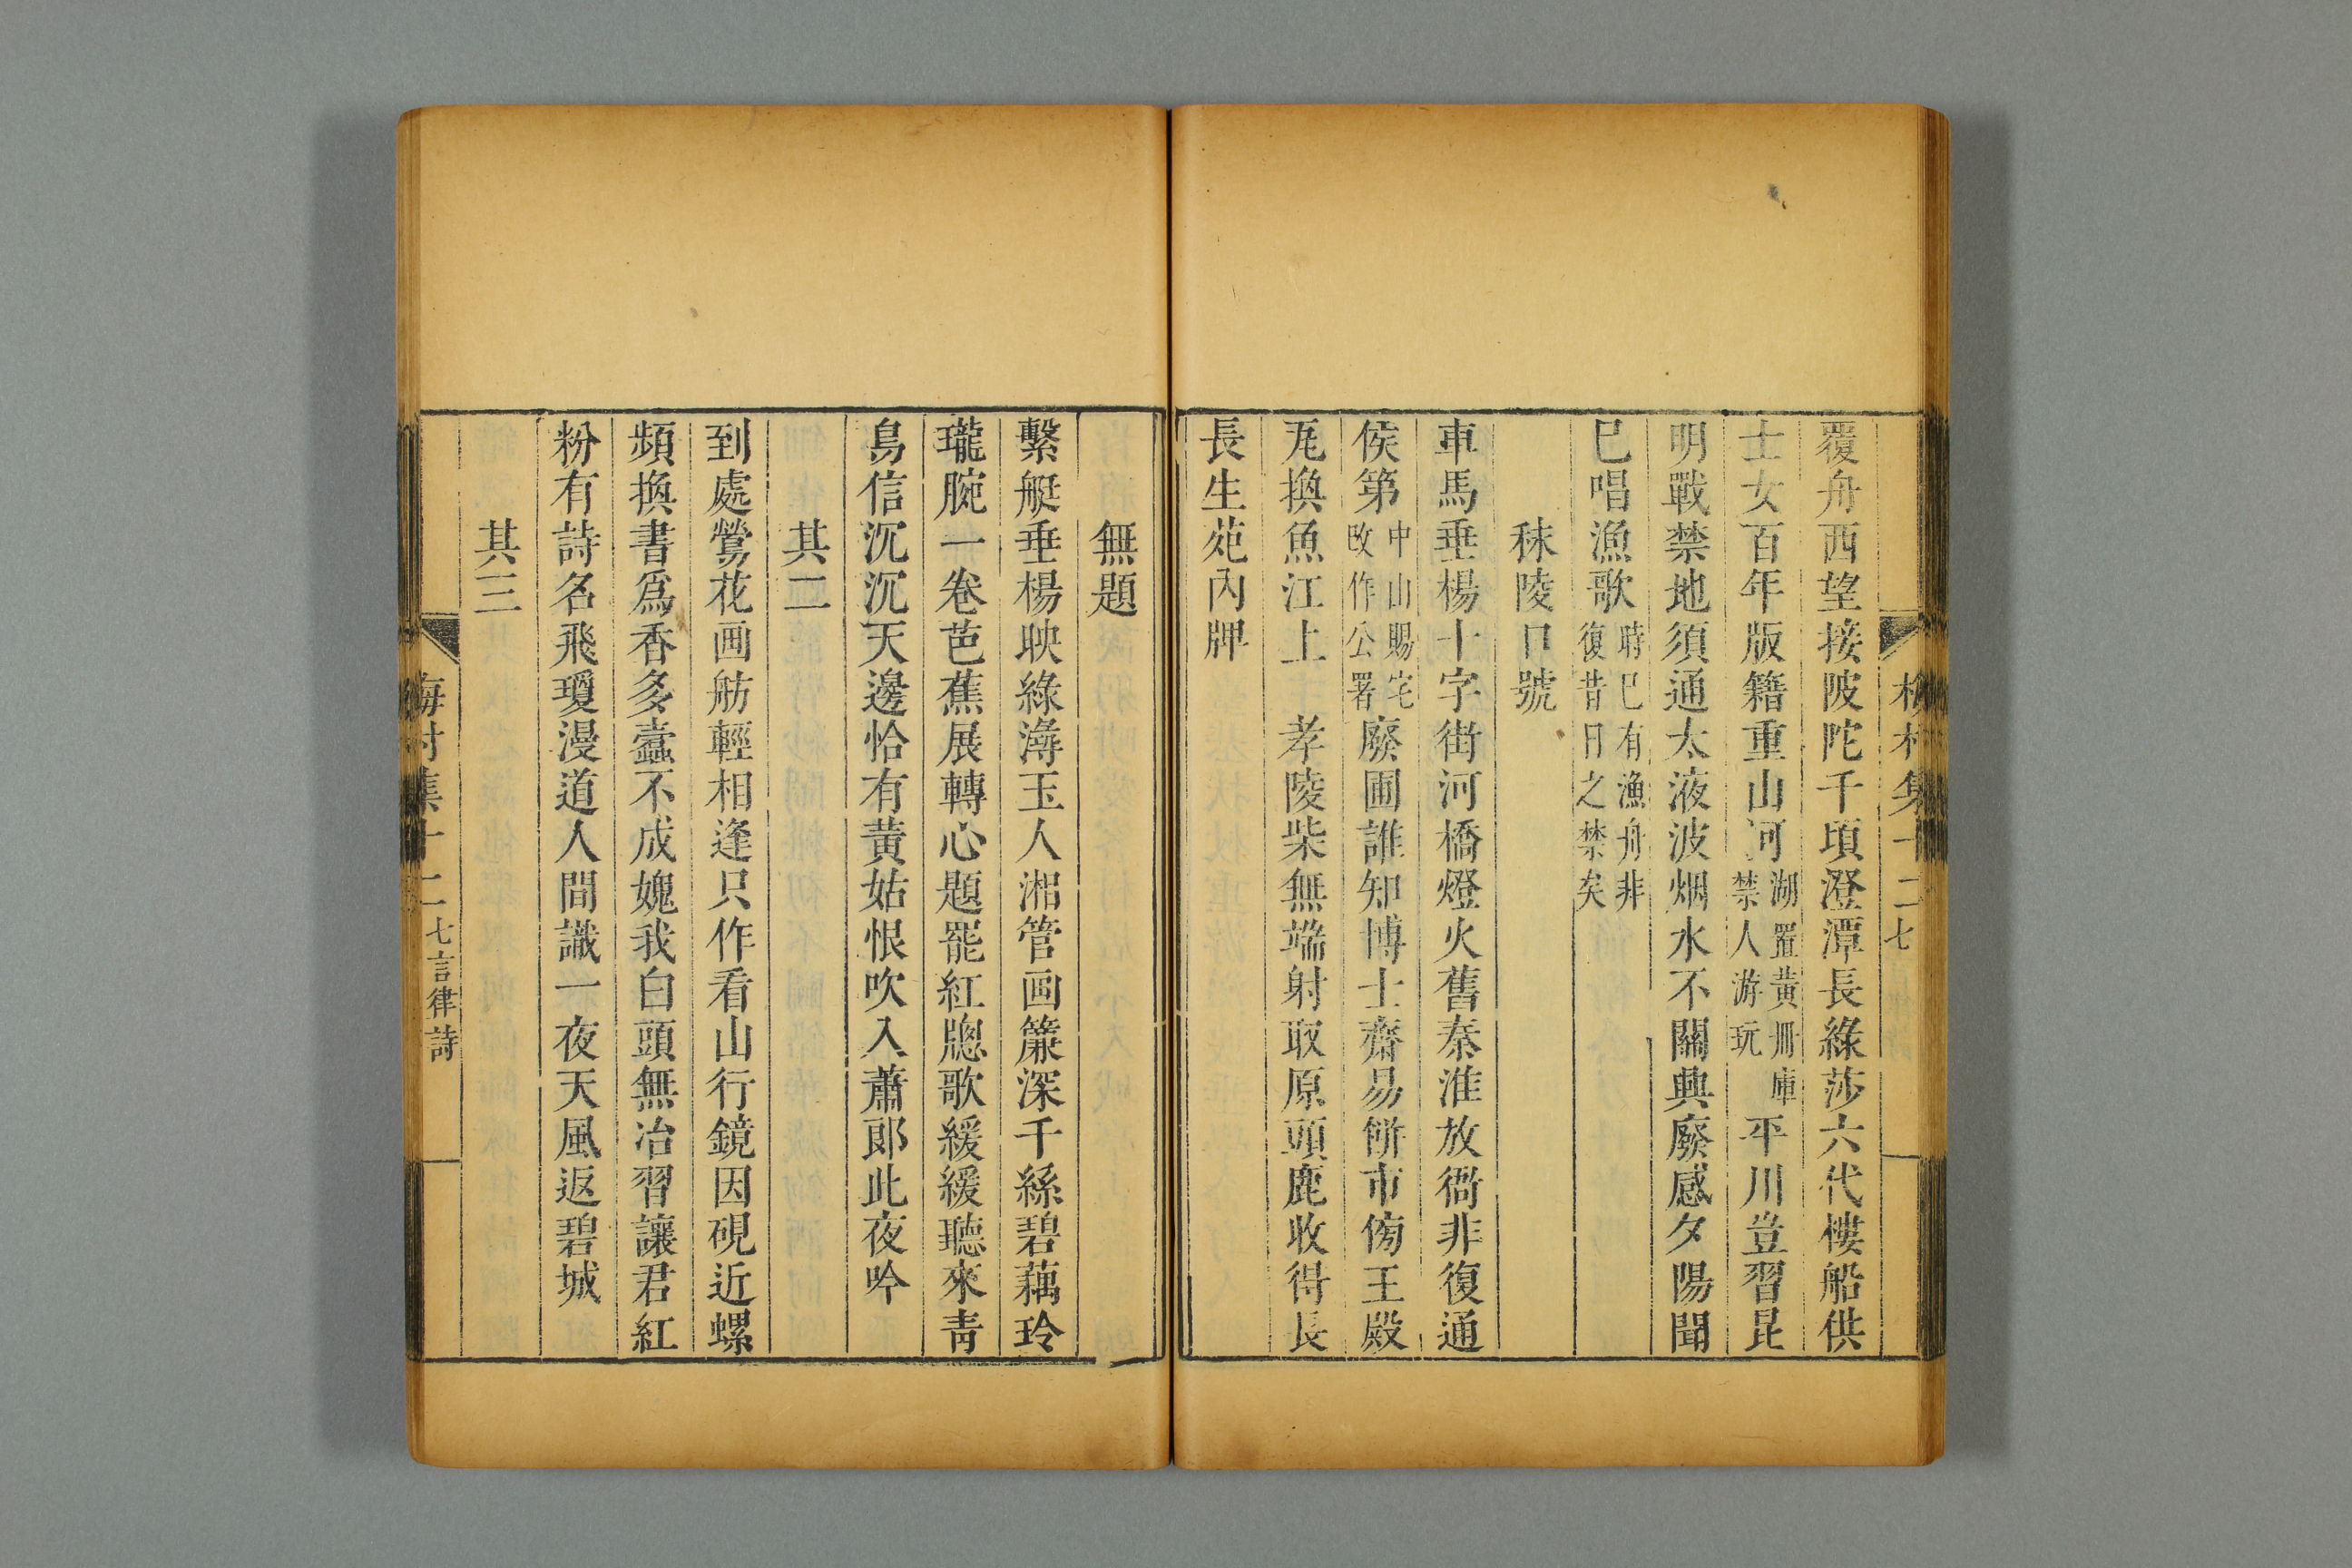 覆舟西望接陂陀千頃澄潭長綠莎六代樓船供
士女百年版籍重山河湖置黃冊庫禁人游玩平川豈習昆
明戰禁地須通太液波烟水不關興廢感夕陽聞
巳唱漁歌時巳有漁舟非復昔日之禁矣
秣陵口號
車馬垂楊十字街河橋燈火舊秦淮放衙非復通
侯第中山賜宅改作公署廢圃誰知博士齋易餅市傍王殿
瓦換魚江上孝陵柴無端射取原頭鹿收得長
長生苑內牌
無題
繫艇垂楊映綠潯玉人湘管画簾深千絲碧藕玲
瓏腕一卷芭蕉展轉心題罷紅牕歌緩緩聽來靑
鳥信沉沉天邊恰有黃姑恨吹入蕭郞此夜吟
其二
到處鶯花画舫輕相逢只作看山行鏡因硯近螺
頻換書爲香多蠹不成媿我白頭無冶習讓君紅
粉有詩名飛瓊漫道人間識一夜天風返碧城
其三
梅村集十二 七言律詩